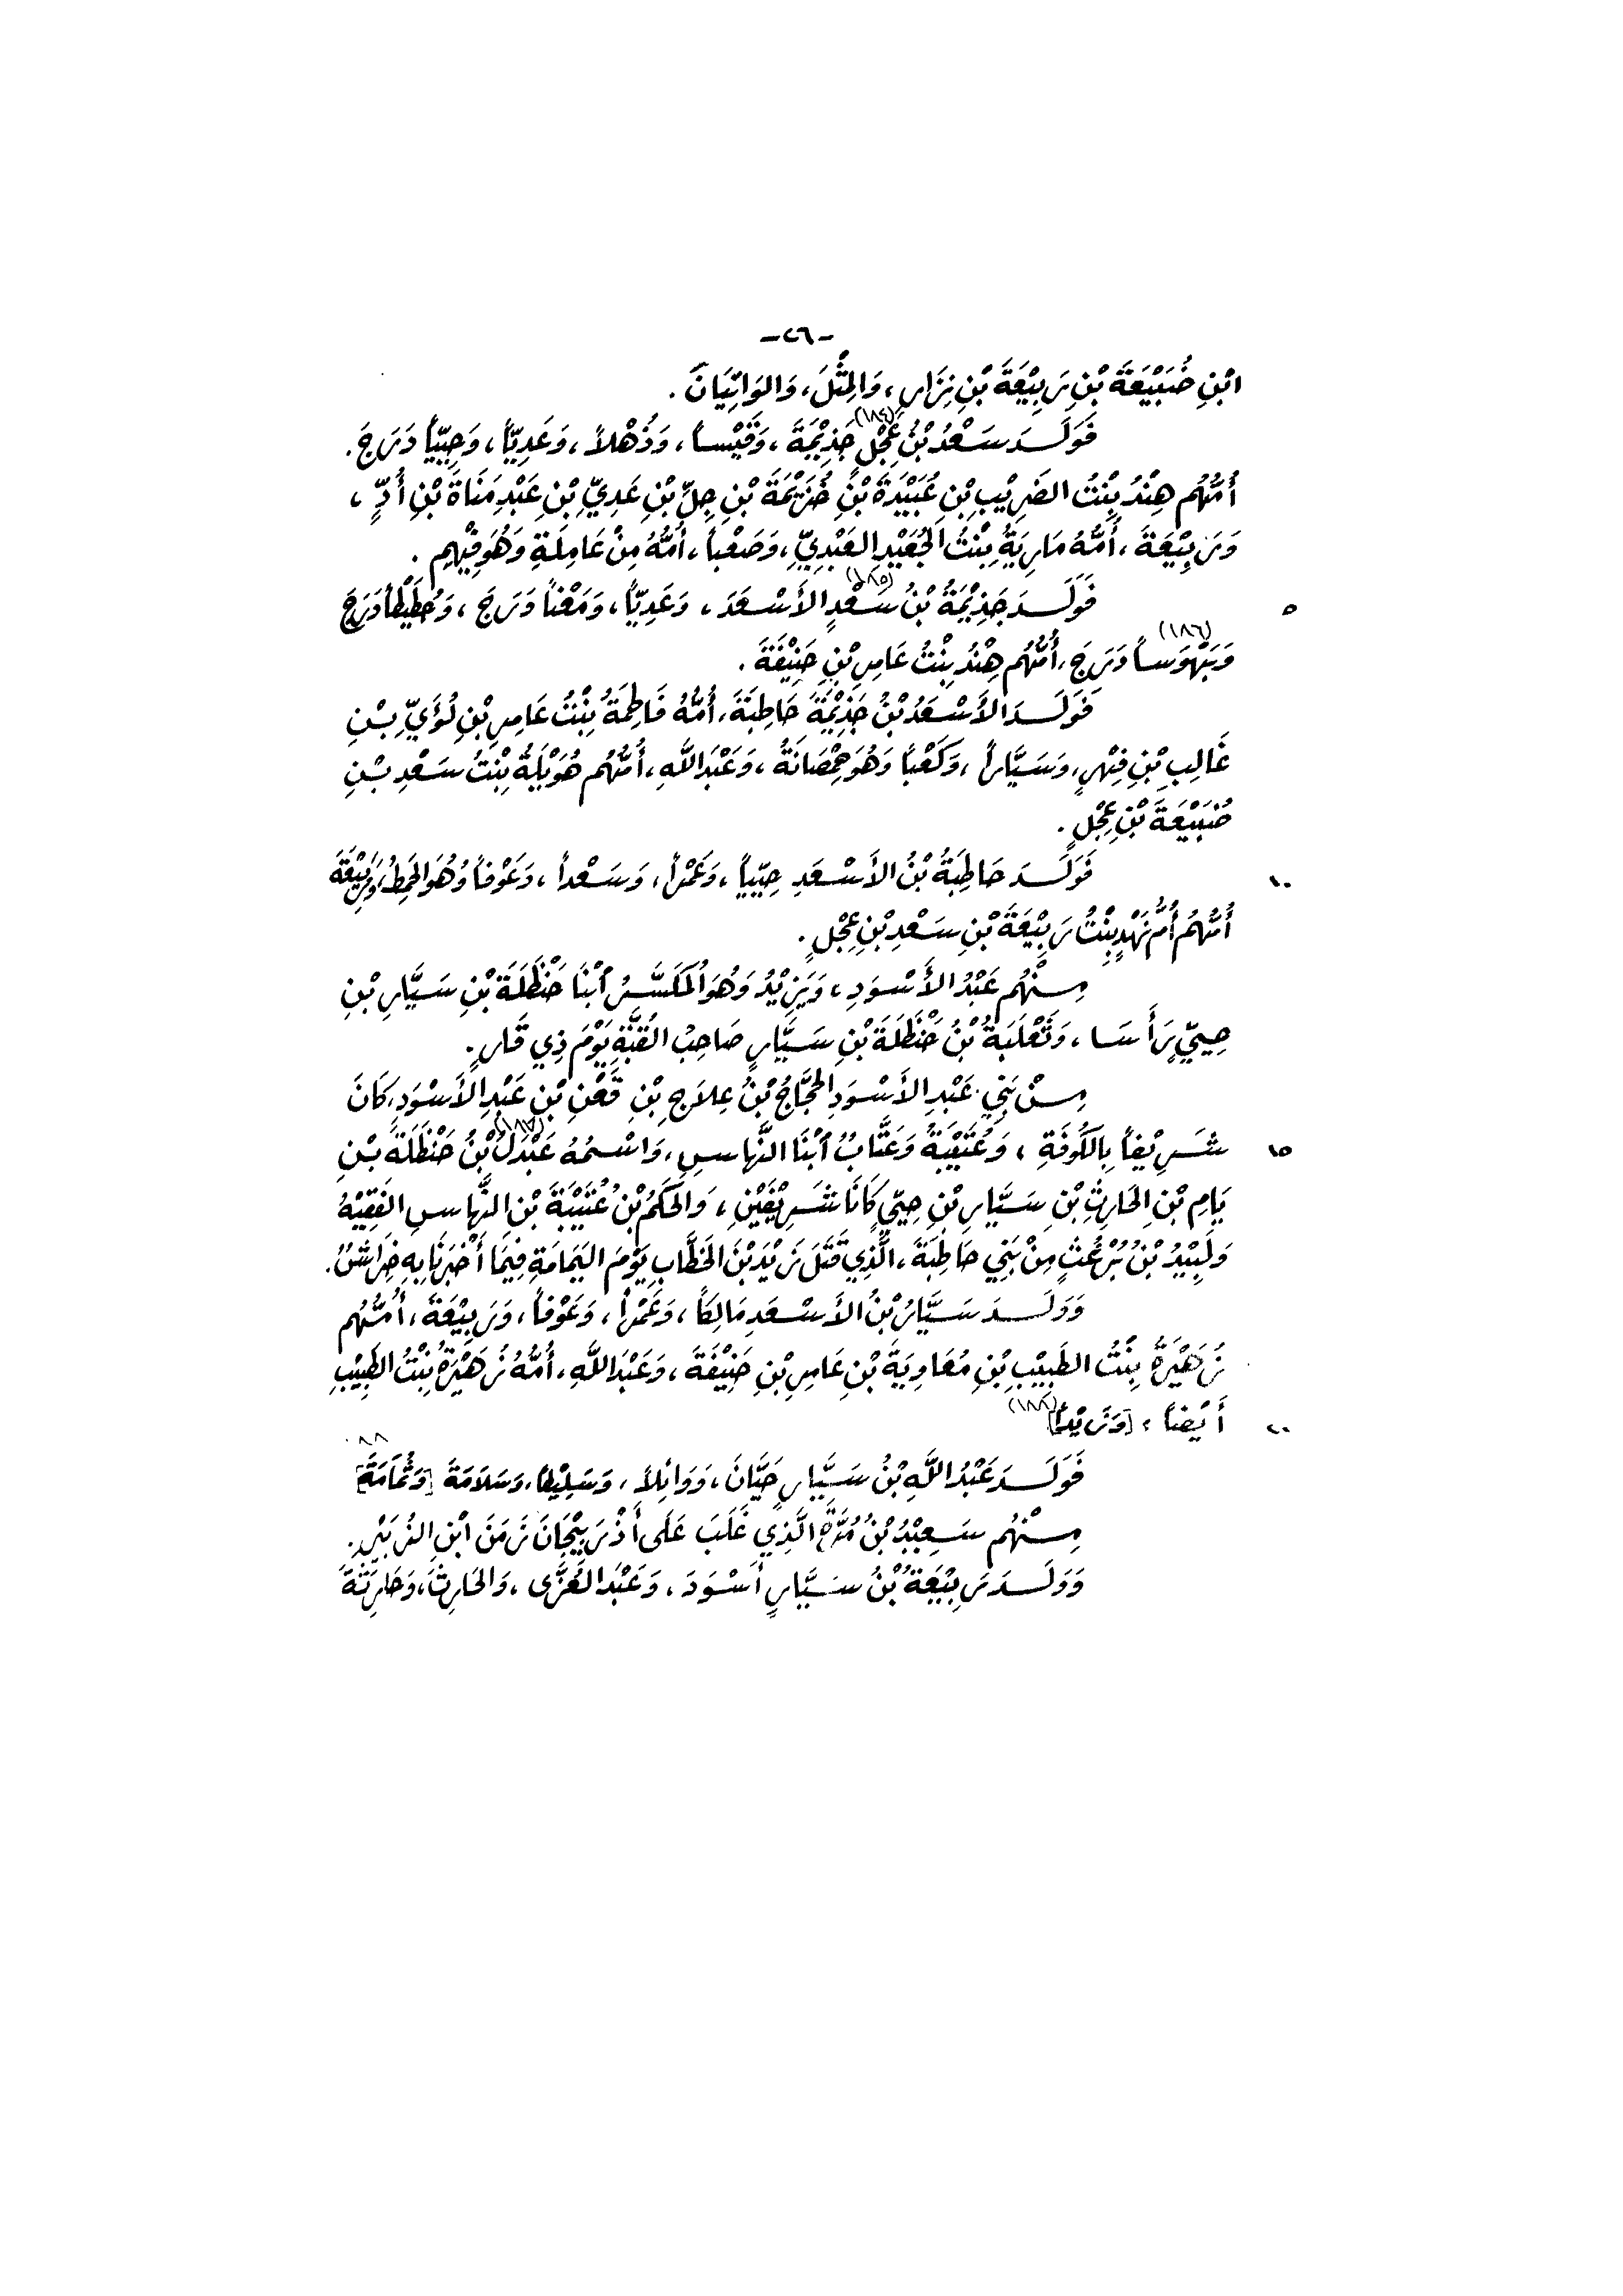 -٤٦-
ابْنِ ضُبَيْعَةَ بْنِ رَبِيْعَةَ بْنِ نِزَارٍ، وَالمِثْلَ، وَالوَاثِيَانَ.
فَوَلَدَ سَعْدُ بْنُ عِجْلٍ (١٨٤) جَذِيْمَةَ، وَقَيْساً، وَذُهْلاً، وَعَدِيّاً، وَحِيّياً دَرَجَ.
أُمُّهُم هِنْدُ بِنْتُ الضَرِيْبِ بْنِ عُبَيْدَةَ بْنِ خُزَيْمَةَ بْنِ جِلِّ بْنِ عَدِيِّ بْنِ عَبْدِ مَنَاةَ بْنِ أُدٍّ،
وَرَبِيْعَةَ، أُمُّهُ مَارِيَةُ بِنْتُ الجُعَيْدِ العَبْدِيِّ، وَصَعْباً، أُمُّهُ مِنْ عَامِلَةِ وَهُوَ فِيْهِم.
٥ فَوَلَدَ جَذِيْمَةُ بْنُ سَعْدٍ (١٨٥) الأَسْعَدَ، وَعَدِيّاً، وَمَعْناً دَرَجَ، وَحُطَيْطاً دَرَجَ
وَبَيْهَساً (١٨٦) دَرَجَ، أُمُّهُم هِنْدُ بِنْتُ عَامِرِ بْنِ حَنِيْفَةَ.
فَوَلَدَ الأَسْعَدُ بْنُ جَذِيْمَةَ حَاطِبَةَ، أُمُّهُ فَاطِمَةُ بِنْتُ عَامِرِ بْنِ لُؤَيِّ بْنِ
غَالِبِ بْنِ فِهْرٍ، وَسَيَّاراً، وَكَعْباً وَهُوَ حِمْصَانَةُ، وَعَبْدَ اللهِ، أُمُّهُم هُوَيْلَةُ بِنْتُ سَعْدِ بْنِ
ضُبَيْعَةَ بْنِ عِجْلٍ.
١٠ فَوَلَدَ حَاطِبَةُ بْنُ الأَسْعَدِ حِيّياً، وَعَمْراً، وَسَعْداً، وَعَوْفاً وَهُوَ الحَمِطُ، وَرَبِيْعَةَ
أُمُّهُم أُمُّ نَهْدٍ بِنْتُ رَبِيْعَةَ بْنِ سَعْدِ بْنِ عِجْلٍ.
مِنْهُم عَبْدُ الأَسْوَدِ، وَيَزِيْدُ وَهُوَ المُكَسَّرُ ابْنَا حَنْظَلَةَ بْنِ سَيَّارِ بْنِ
حِيِيٍّ رَأَسَا، وَثَعْلَبَةُ بْنُ حَنْظَلَةَ بْنِ سَيَّارٍ صَاحِبُ القُبَّةِ يَوْمَ ذِي قَارٍ.
مِنْ بَنِي عَبْدِ الأَسْوَدِ الحَجَّاجُ بْنُ عِلاَجِ بْنِ قَعْنِ بْنِ عَبْدِ الأَسْوَدِ، كَانَ
١٥ شَرِيْفاً بِالكُوفَةِ، وَعُتَيْبَةُ وَعَتَّابُ ابْنَا النَّهَّاسِ، وَاسْمُهُ عَبْدَلُ (١٨٧) بْنُ حَنْظَلَةَ بْنِ
يَامِ بْنِ الحَارِثِ بْنِ سَيَّارِ بْنِ حِيِيٍّ كَانَا شَرِيْفَيْنِ، وَالحَكَمُ بْنُ عُتَيْبَةَ بْنِ النَّهَّاسِ الفَقِيْهُ
وَلَبِيْدُ بْنُ بُرْغُثٍ مِنْ بَنِي حَاطِبَةَ، الَّذِي قَتَلَ زَيْدَ بْنَ الخَطَّابِ يَوْمَ اليَمَامَةِ فِيْمَا أَخْبَرَنَا بِهِ خِرَاشٌ.
وَوَلَدَ سَيَّارُ بْنُ الأَسْعَدِ مَالِكاً، وَعَمْراً، وَعَوْفاً، وَرَبِيْعَةَ، أُمُّهُم
زُهَيْرَةُ بِنْتُ الطَبِيْبِ بْنِ مُعَاوِيَةَ بْنِ عَامِرِ بْنِ حَنِيْفَةَ، وَعَبْدَ اللهِ، أُمُّهُ زُهَيْرَةُ بِنْتُ الطَبِيْبِ
٢٠ أَيْضاً، [وَزَيْداً] (١٨٨)
فَوَلَدَ عَبْدُ اللهِ بْنُ سَيَّارٍ حَيَّانَ، وَوَائِلاً، وَسَلِيْطاً، وَسَلاَمَةَ [وَثُمَامَةَ]
مِنْهُم سَعِيْدُ بْنُ مُرَّةَ الَّذِي غَلَبَ عَلَى أَذْرَبِيْجَانَ زَمَنَ ابْنِ الزُبَيْرِ.
وَوَلَدَ رَبِيْعَةُ بْنُ سَيَّارٍ أَسْوَدَ، وَعَبْدَ العُزَّى، وَالحَارِثَ، وَحَارِثَةَ